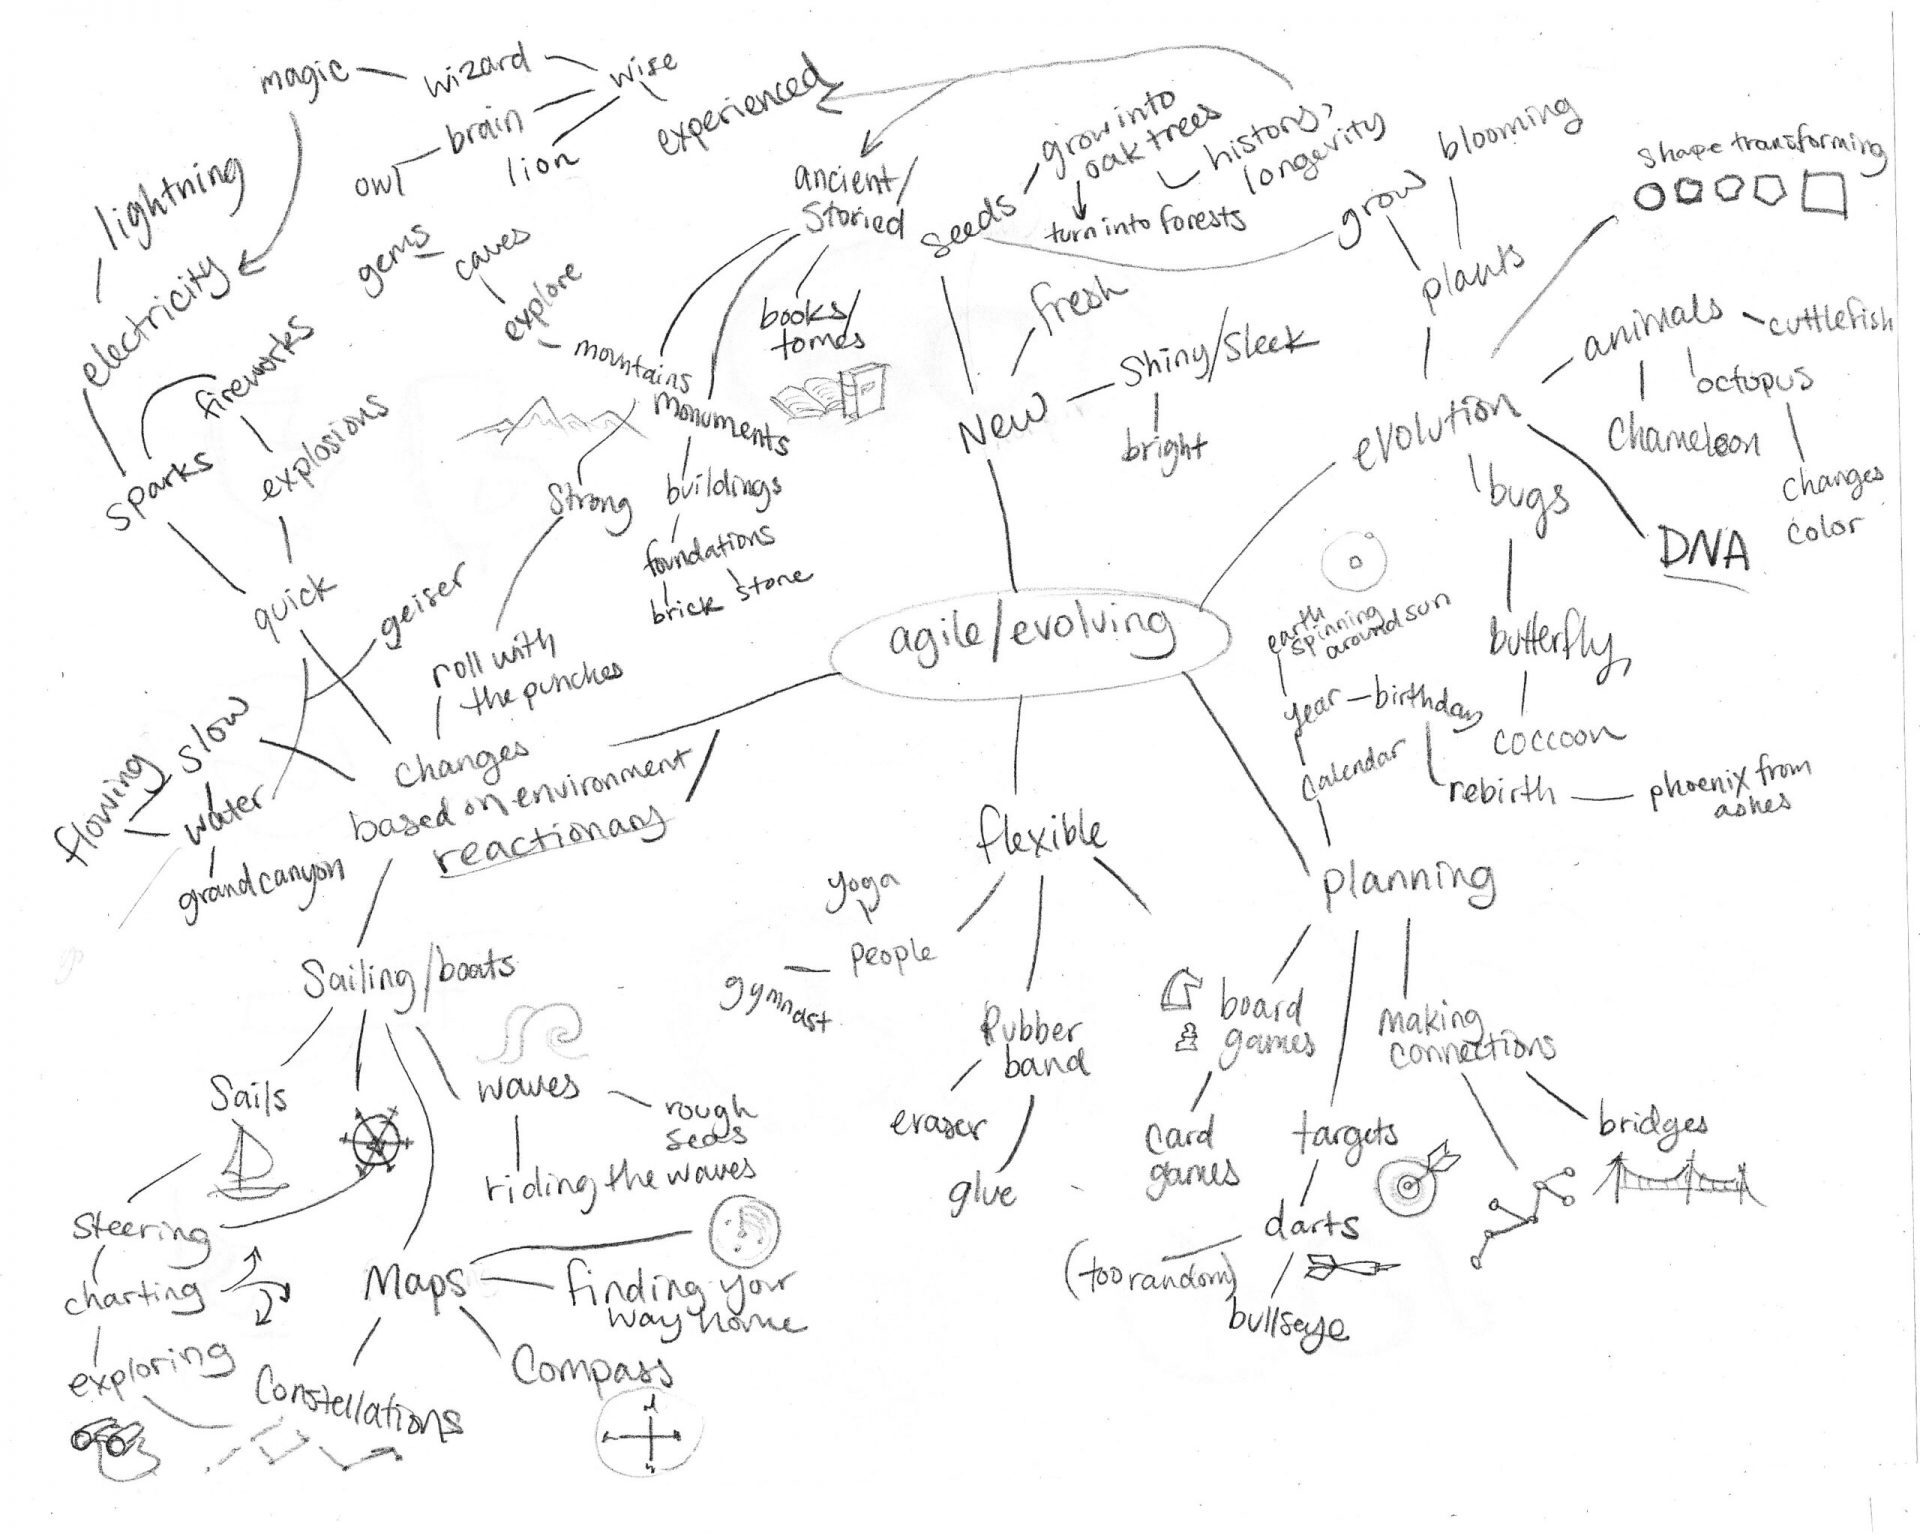 magic
wizard
wise
brain
owl
lion
experienced
lightning
electricity
gems
caves
explore
mountains
fireworks
explosions
sparks
quick
geiser
ancient/
storied
books/
tomes
monuments
buildings
foundations
brick
stone
strong
roll with
the punches
seeds
grow into
oak trees
history,
longevity
turn into forests
grow
blooming
plants
shape transforming
fresh
New
Shiny/Sleek
bright
evolution
animals
cuttlefish
octopus
chameleon
changes
color
bugs
DNA
butterfly,
coccoon
agile/evolving
earth
spinning
around sun
year
birthday
calendar
rebirth
phoenix from
ashes
slow
flowing
water
grand canyon
changes
based on environment
reactionary
flexible
yoga
people
gymnast
Rubber
band
eraser
glue
planning
board
games
card
games
making
connections
targets
bridges
darts
(too random)
bullseye
Sailing/boats
Sails
waves
rough
seas
riding the waves
steering
charting
exploring
Maps
finding your
way home
Compass
Constellations